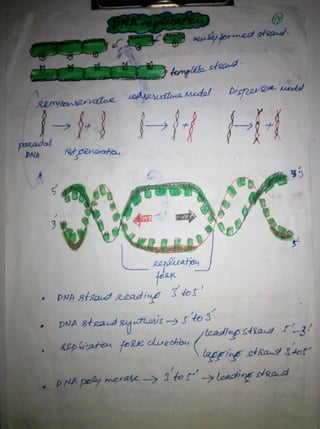 DNA replication
newly formed strand.
template strand.
semiconservative conservative model Dispersive model
parental DNA
1st generation
5' 3'
3' 5'
replication
fork
• DNA strand reading 3' to 5'
• DNA strand synthesis → 5' to 3'
• replication fork direction leading strand 5' - 3'
lagging strand 3' to 5'
• DNA polymerase → 3' to 5' → leading strand